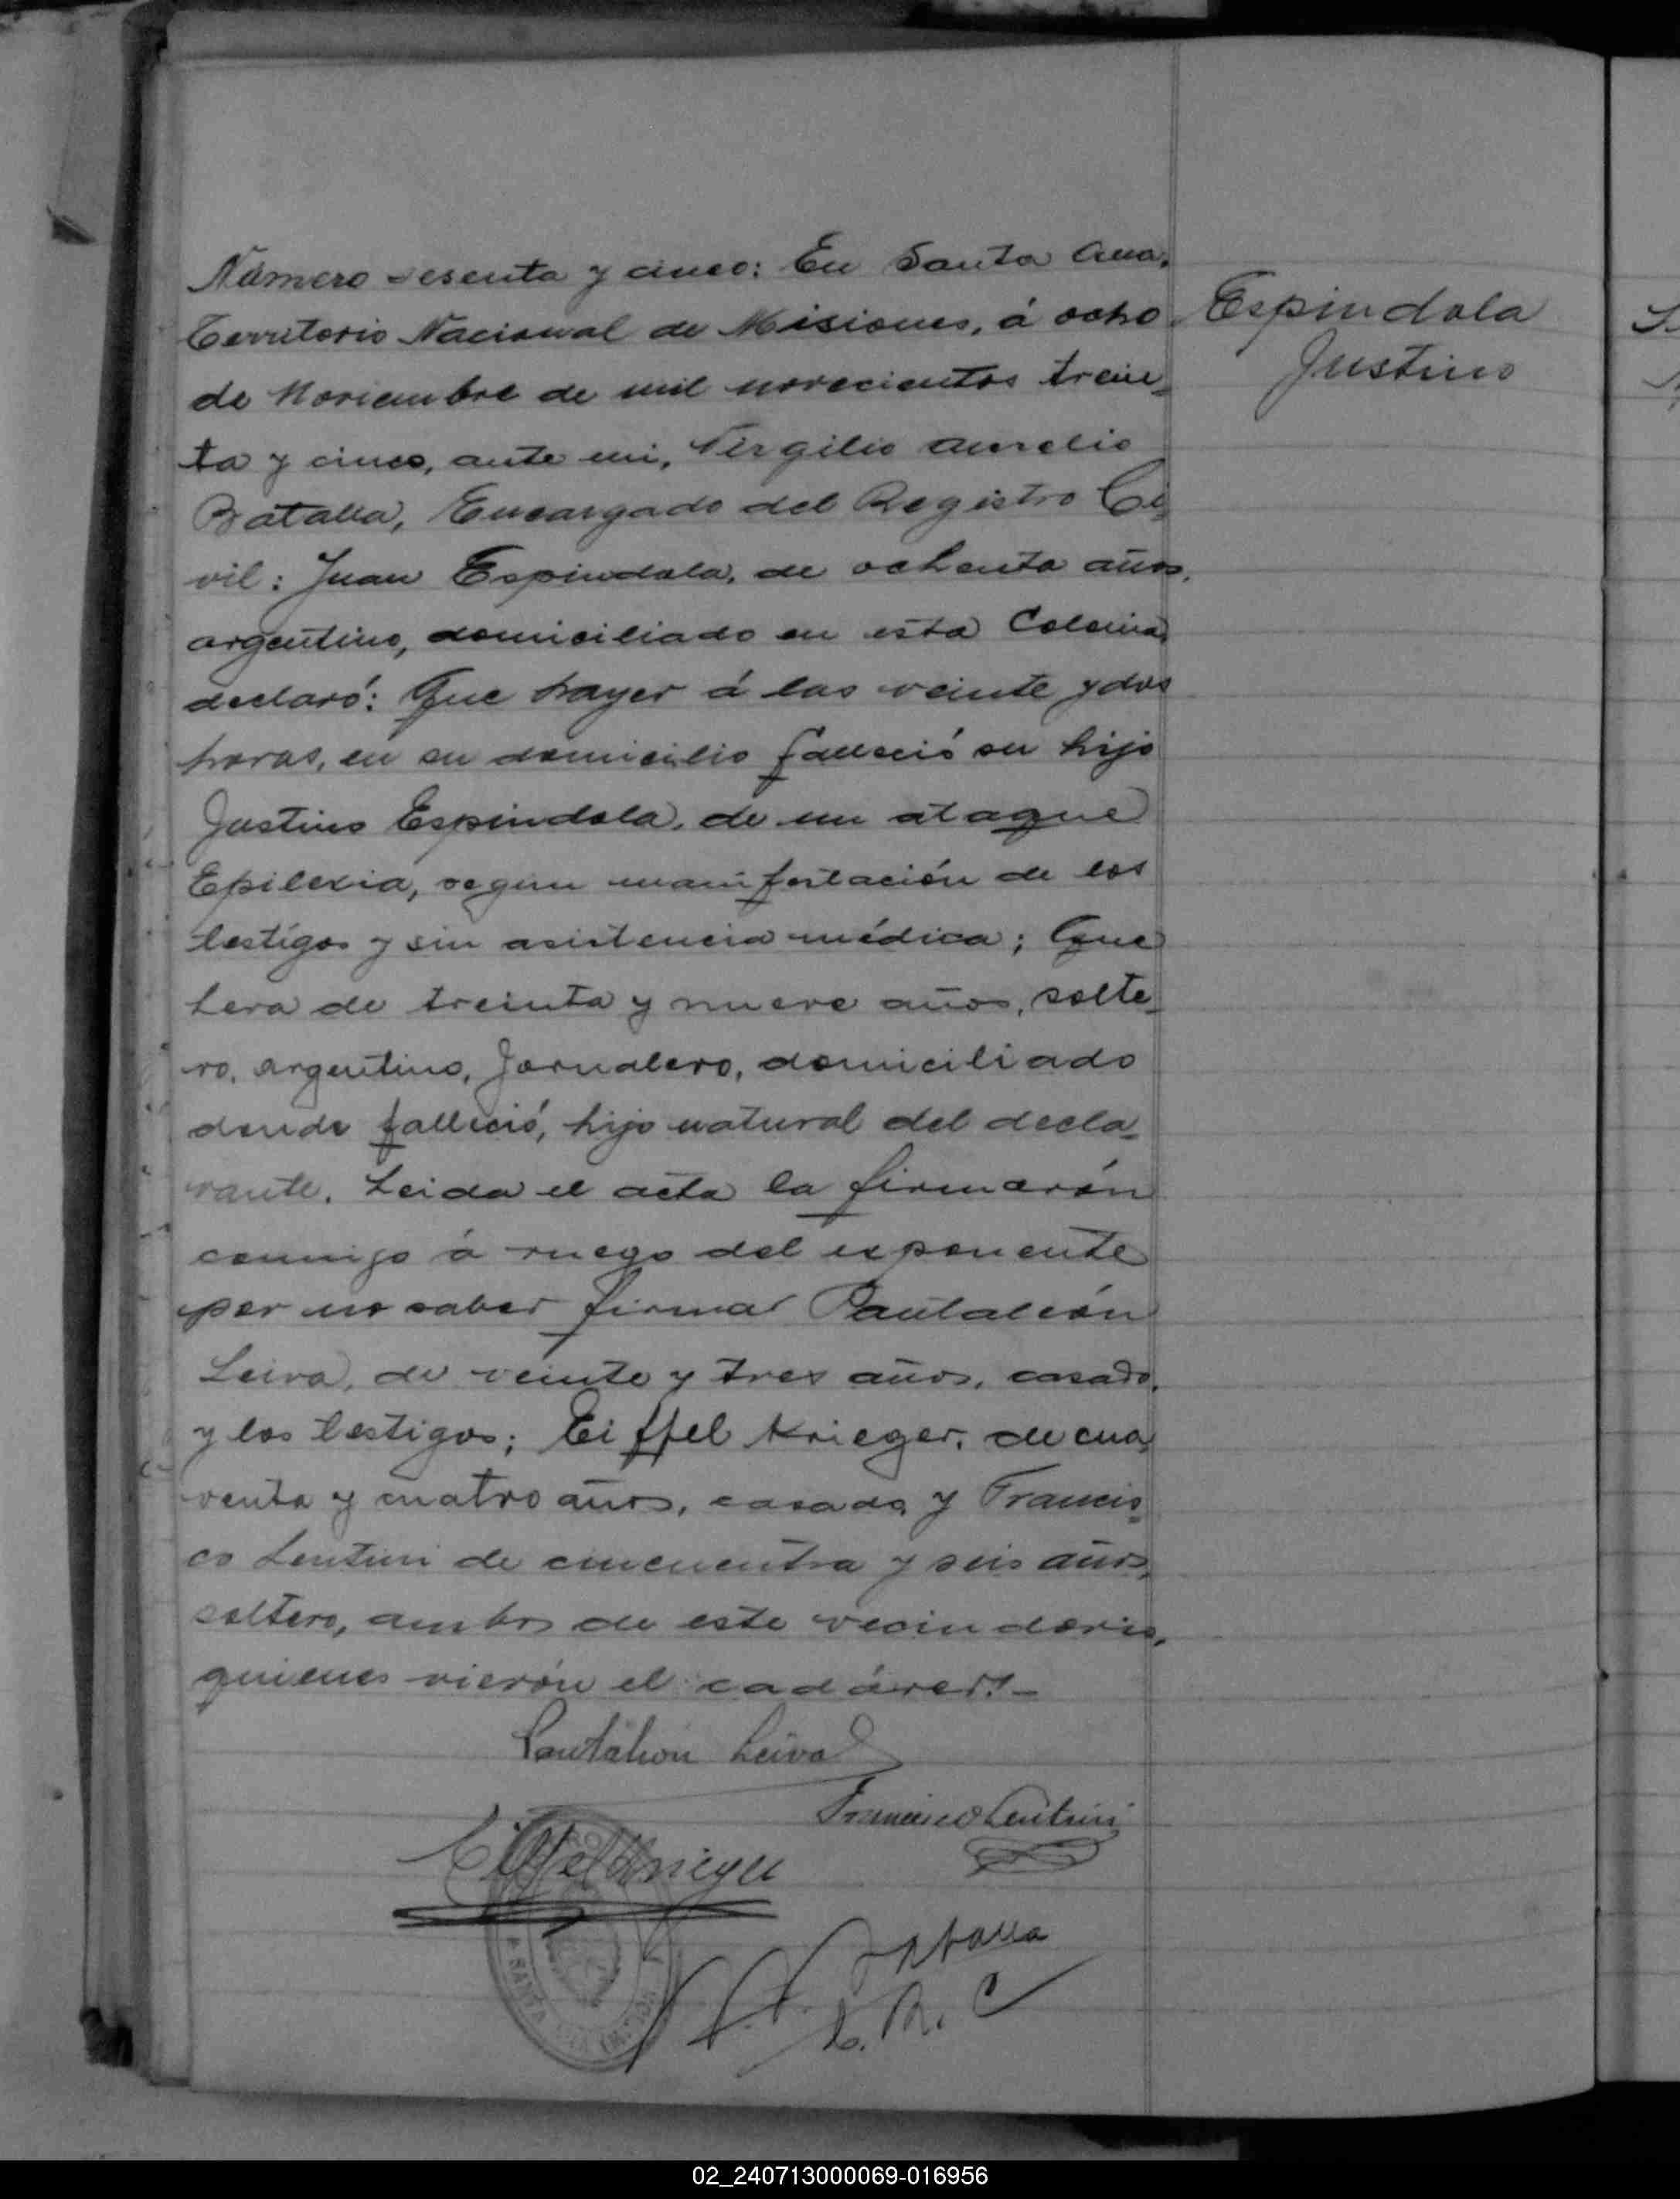 Número sesenta y cinco: En Santa Ana,
Territorio Nacional de Misiones, á ocho
de Noviembre de mil novecientos trein-
ta y cinco, ante mi, Virgilio Aurelio
Batalla, Encargado del Registro Ci-
vil: Juan Espindola, de ochenta años,
argentino, domiciliado en esta Colonia,
declaró: Que hayer á las veinte y dos
horas, en su domicilio falleció su hijo
Justino Espindola, de un ataque
Epilexia, segun manifestación de los
testigos y sin asistencia médica; Que
hera de treinta y nueve años, solte-
ro, argentino, Jornalero, domiciliado
donde falleció, hijo natural del decla-
rante. Leida el acta la firmarón
conmigo á ruego del exponente
por no saber firmar Pantaleón
Leiva, de veinte y tres años, casado,
y los testigos; Eiffel Krieger, de cua-
renta y cuatro años, casado, y Francis-
co Lentini de cincuentra y seis años,
soltero, ambos de este vecindario,
quienes vierón el cadáver.-
Espindola
Justino
Pantaleón Leiva
Francisco Lentini
Eiffel Krieger
Batalla
E. R. C
SANTA
02_240713000069-016956